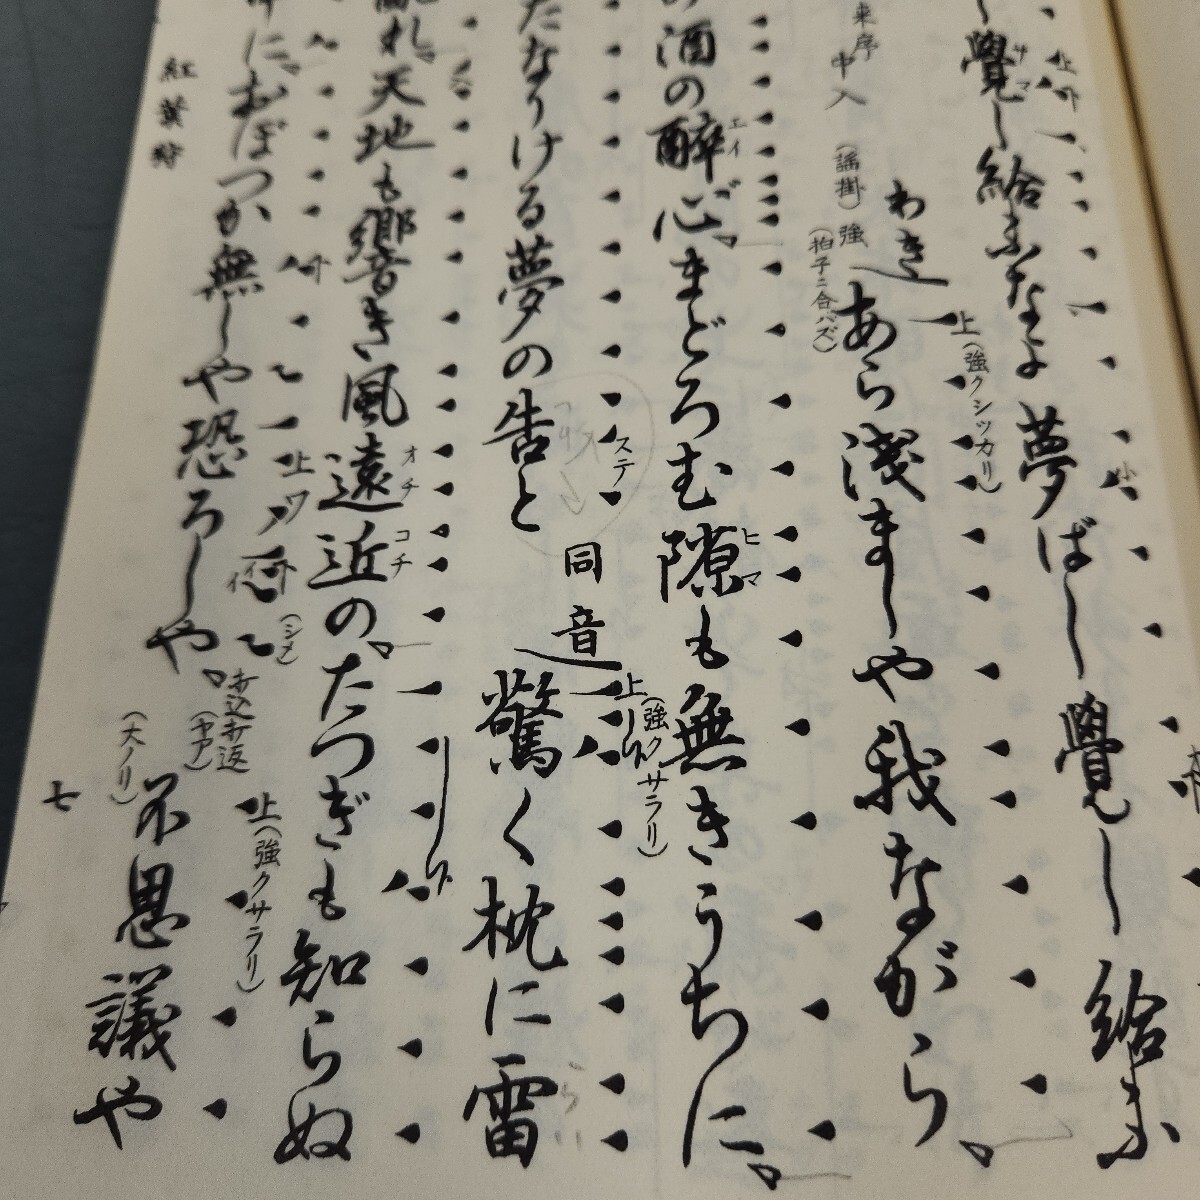 覺し給ふなよ夢ばし覺し給ふ
来序
中入
(謡掛)強
(拍子ニ合ハズ)
わき
上(強クシッカリ)
あら淺ましや我ながら、
酒の醉心、まどろむ隙も無きうちに、
エイ
ヒマ
たなりける夢の告と
ステ
同音
上
(強クサラリ)
驚く枕に雷
れ、天地も響き風遠近の、たつぎも知らぬ
オチ
コチ
に、おぼつか無しや恐ろしや、
(シメ)
打込打返
(ヤア)
(大ノリ)
上(強クサラリ)
不思議や
紅葉狩
七